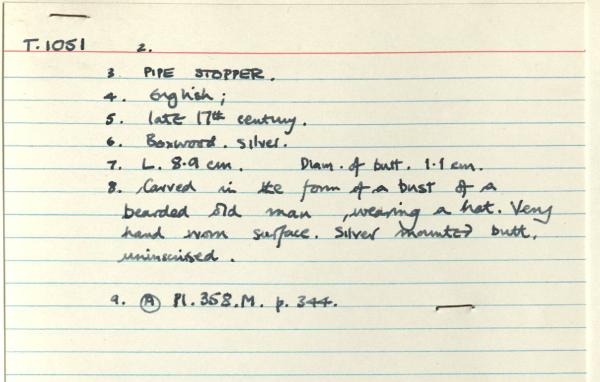 T.1051 2.
3 PIPE STOPPER.
4. English;
5. late 17th century.
6. Boxwood. Silver.
7. L. 8.9 cm. Diam. of butt. 1.1 cm.
8. Carved in the form of a bust of a
bearded old man, wearing a hat. Very
hand worn surface. Silver mounted butt,
uninscribed.
9. Ⓐ Pl. 358.M. p. 344.